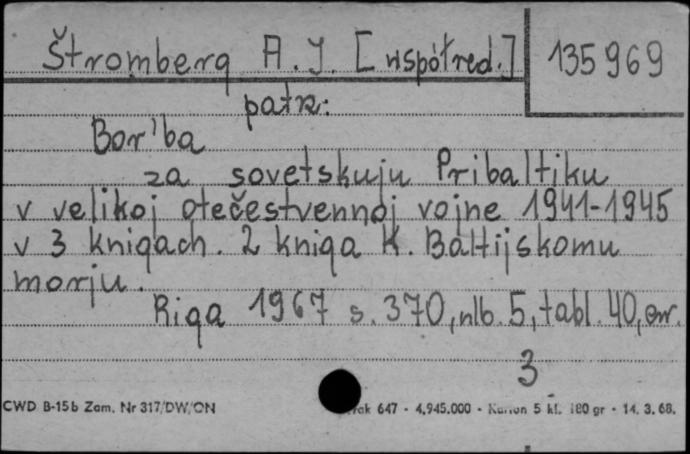 Štromberg A. J. [współred.] 135969
patrz:
Bor'ba
za sovetskuju Pribaltiku
v velikoj otečestvennoj vojne 1941-1945
v 3 knigach. 2 kniga K. Baltijskomu
morju.
Riga 1967 s. 370, nlb. 5, tabl. 40, err.
3
CWD B-15b Zam. Nr 317/DW/ON 647 - 4.945.000 - Karton 5 kl. 180 gr - 14. 3. 68.